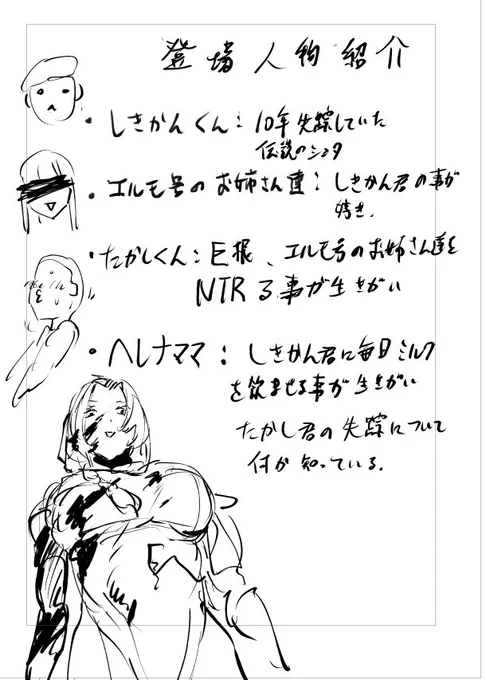 登場人物紹介
・しきかんくん：10年失踪していた
伝説のショタ
・エルモ号のお姉さん達：しきかん君の事が
好き.
・たかしくん：巨根、エルモ号のお姉さん達を
NTRる事が生きがい
・ヘレナママ：しきかん君に毎日ミルク
を飲ませる事が生きがい
たかし君の失踪について
何か知っている.